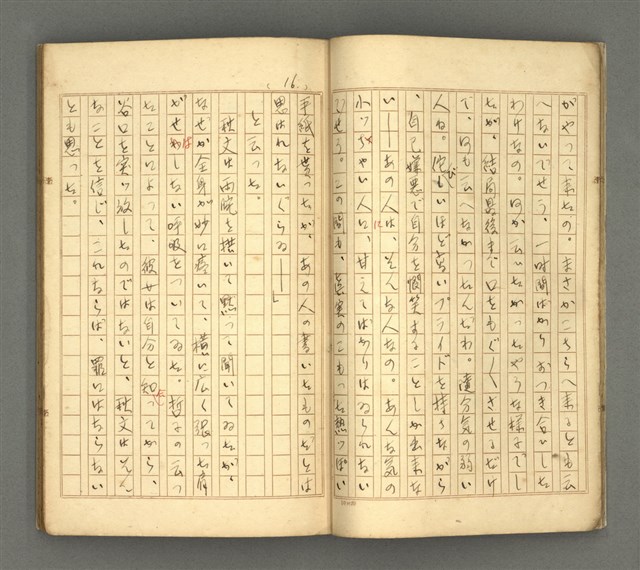 がやつて来たの。まさかこちらへ来るとも云
へないでせう、一時間ばかりおつき合いした
わけなの。何か云いたかつたやうな様子でし
たが、結局最後まで口をもぐ〳〵させるだけ
で、何も云へなかつたんだわ。随分気の弱い
人ね。そのくせびつくりするほど高いプライドを持ちながら
、自己嫌悪で自分を憫笑することしか出来な
い――あの人は、そんな人なの。あんな気の
小つちやい人に、甘えてばかりはゐられない
でせう。この間も、真実のこもつた熱つぽい
( 16. )
手紙を貰つたが、あの人の書いたものだとは
思はれないぐらゐ――」
と云つた。
秋文は両腕を拱いて黙つて聞いてゐたが、
なぜか全身が妙に痙いて、横に広く張つた肩
がせはしない呼吸をついてゐた。哲子の云つ
たことによつて、彼女は自分と知つてから、
谷口を突つ放したのではないと、秋文はそん
なことを信じ、これならば、罪にはならない
とも思つた。